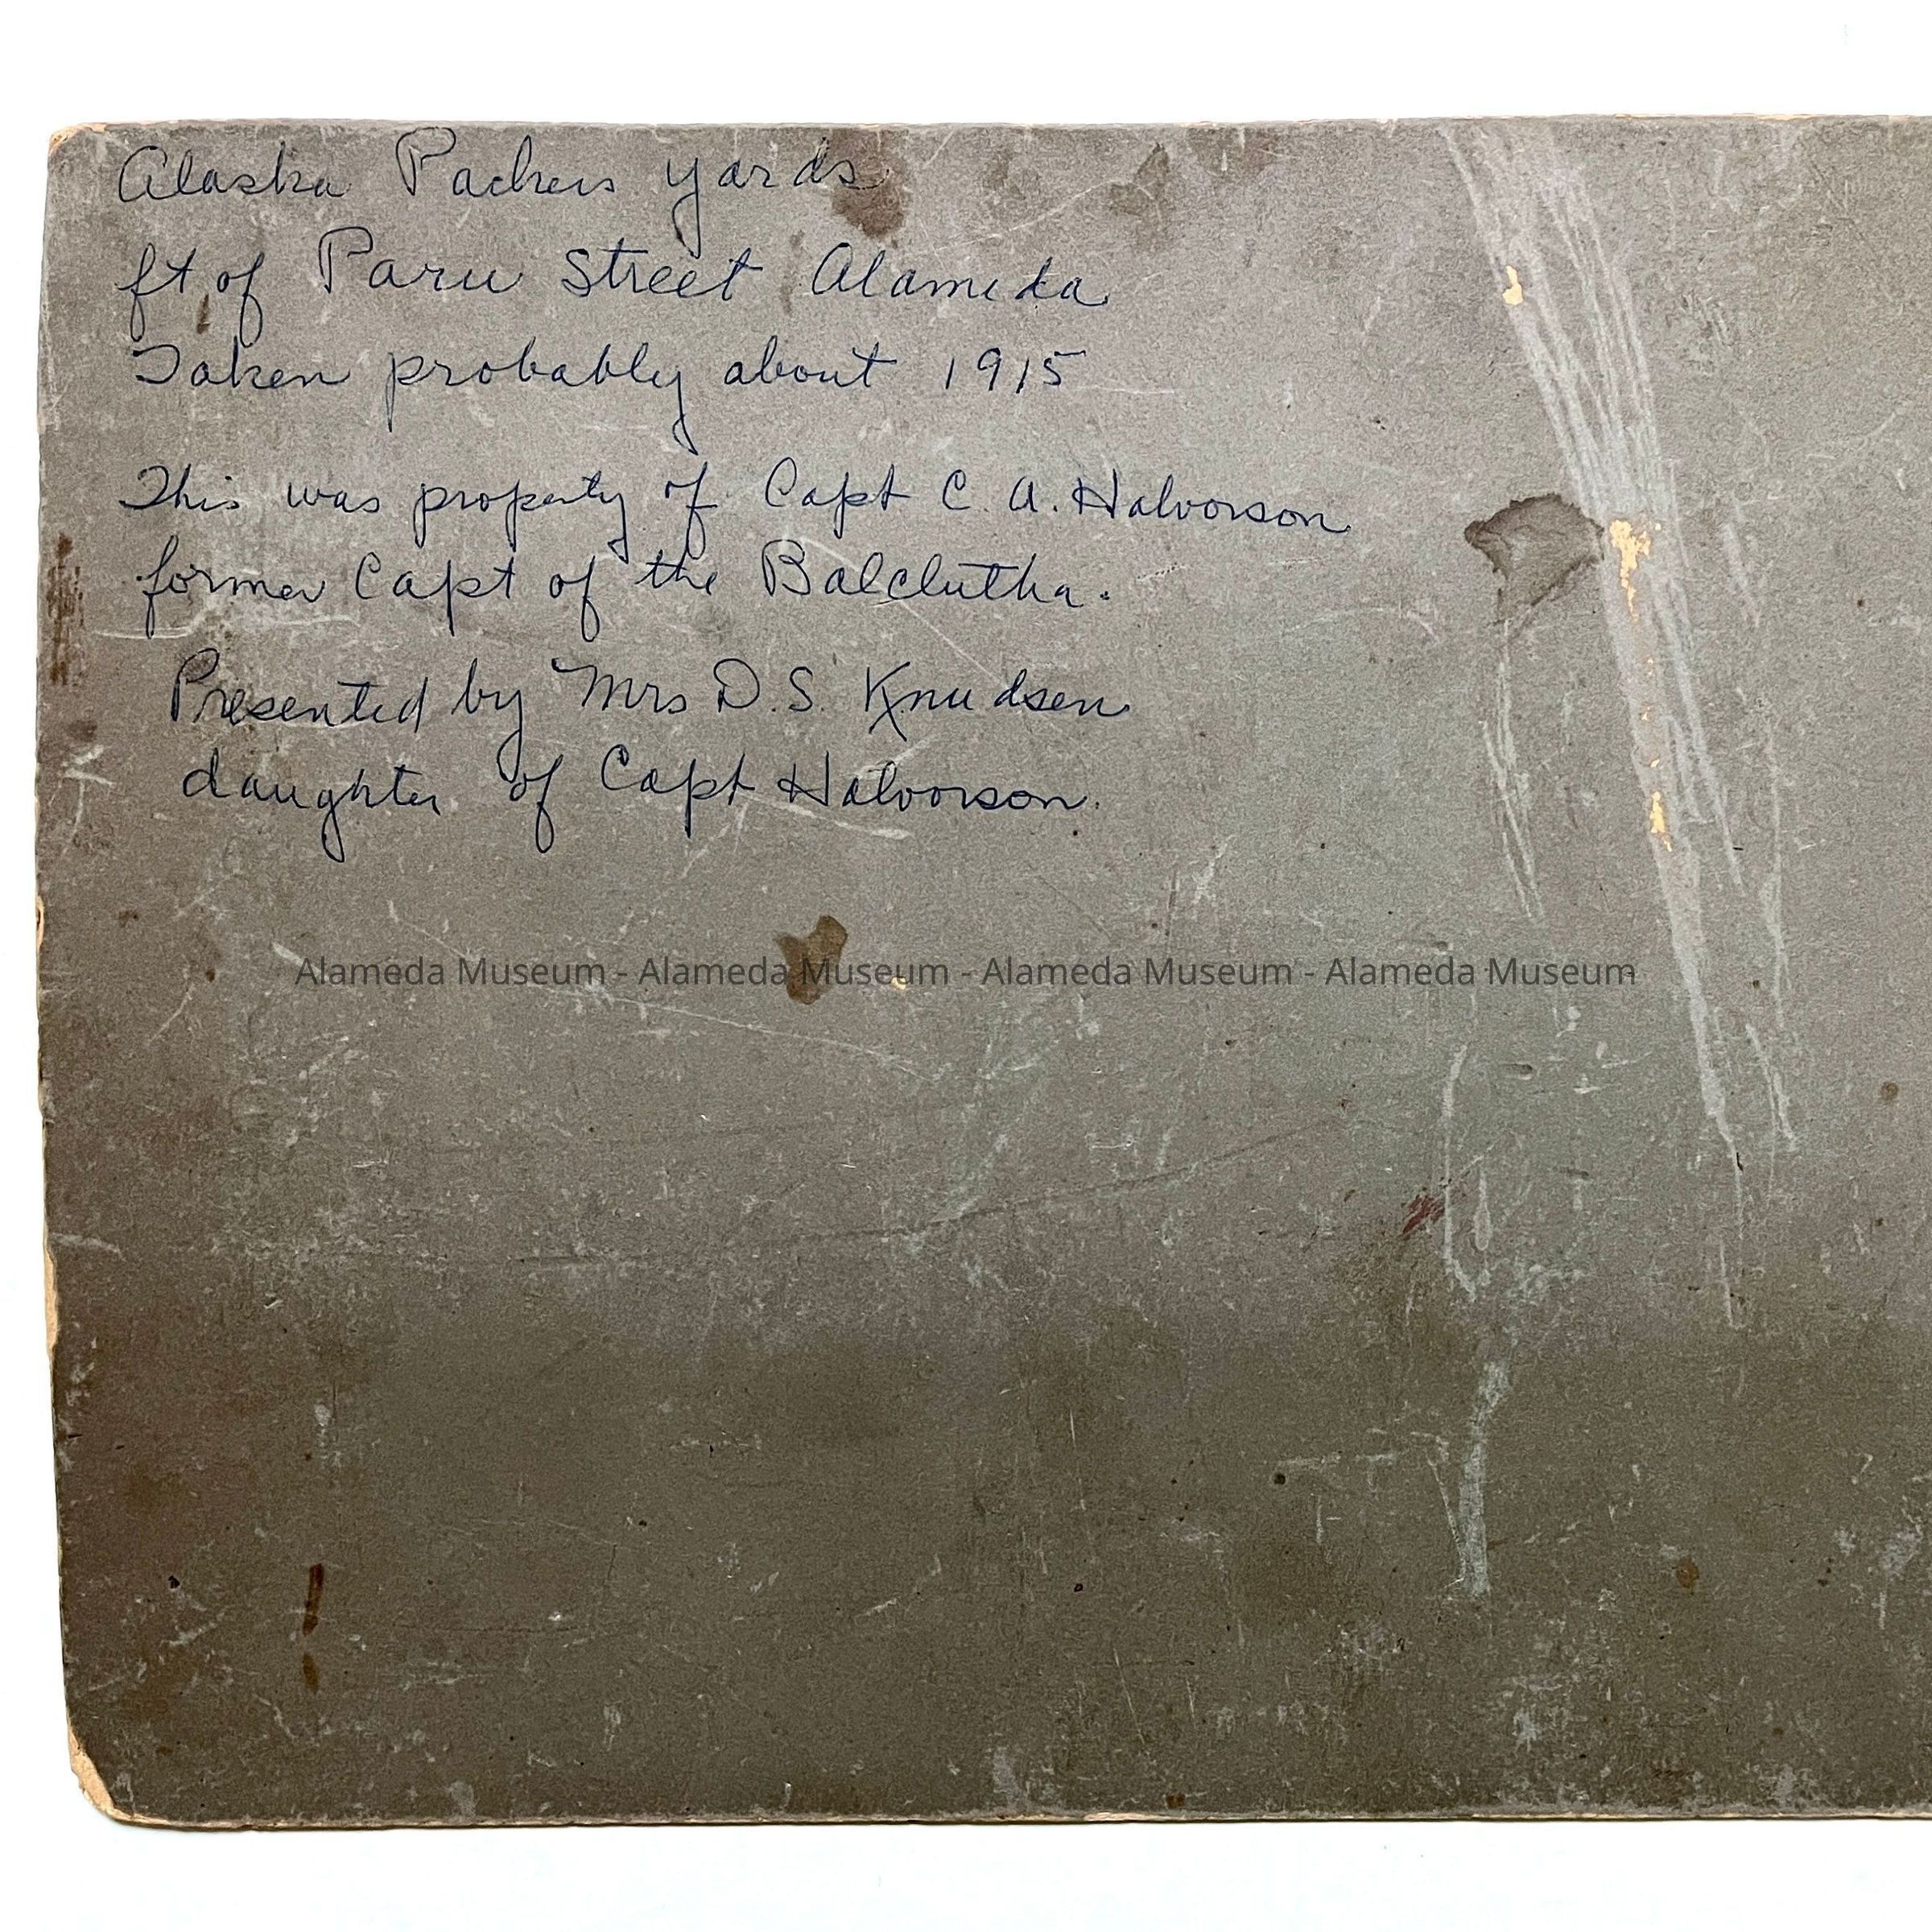 Alaska Packers yards
ft of Paru Street Alameda
Taken probably about 1915
This was property of Capt C. A. Halvorson
former Capt of the Balclutha.
Presented by Mrs D. S. Knudsen
daughter of Capt Halvorson.
Alameda Museum - Alameda Museum - Alameda Museum - Alameda Museum